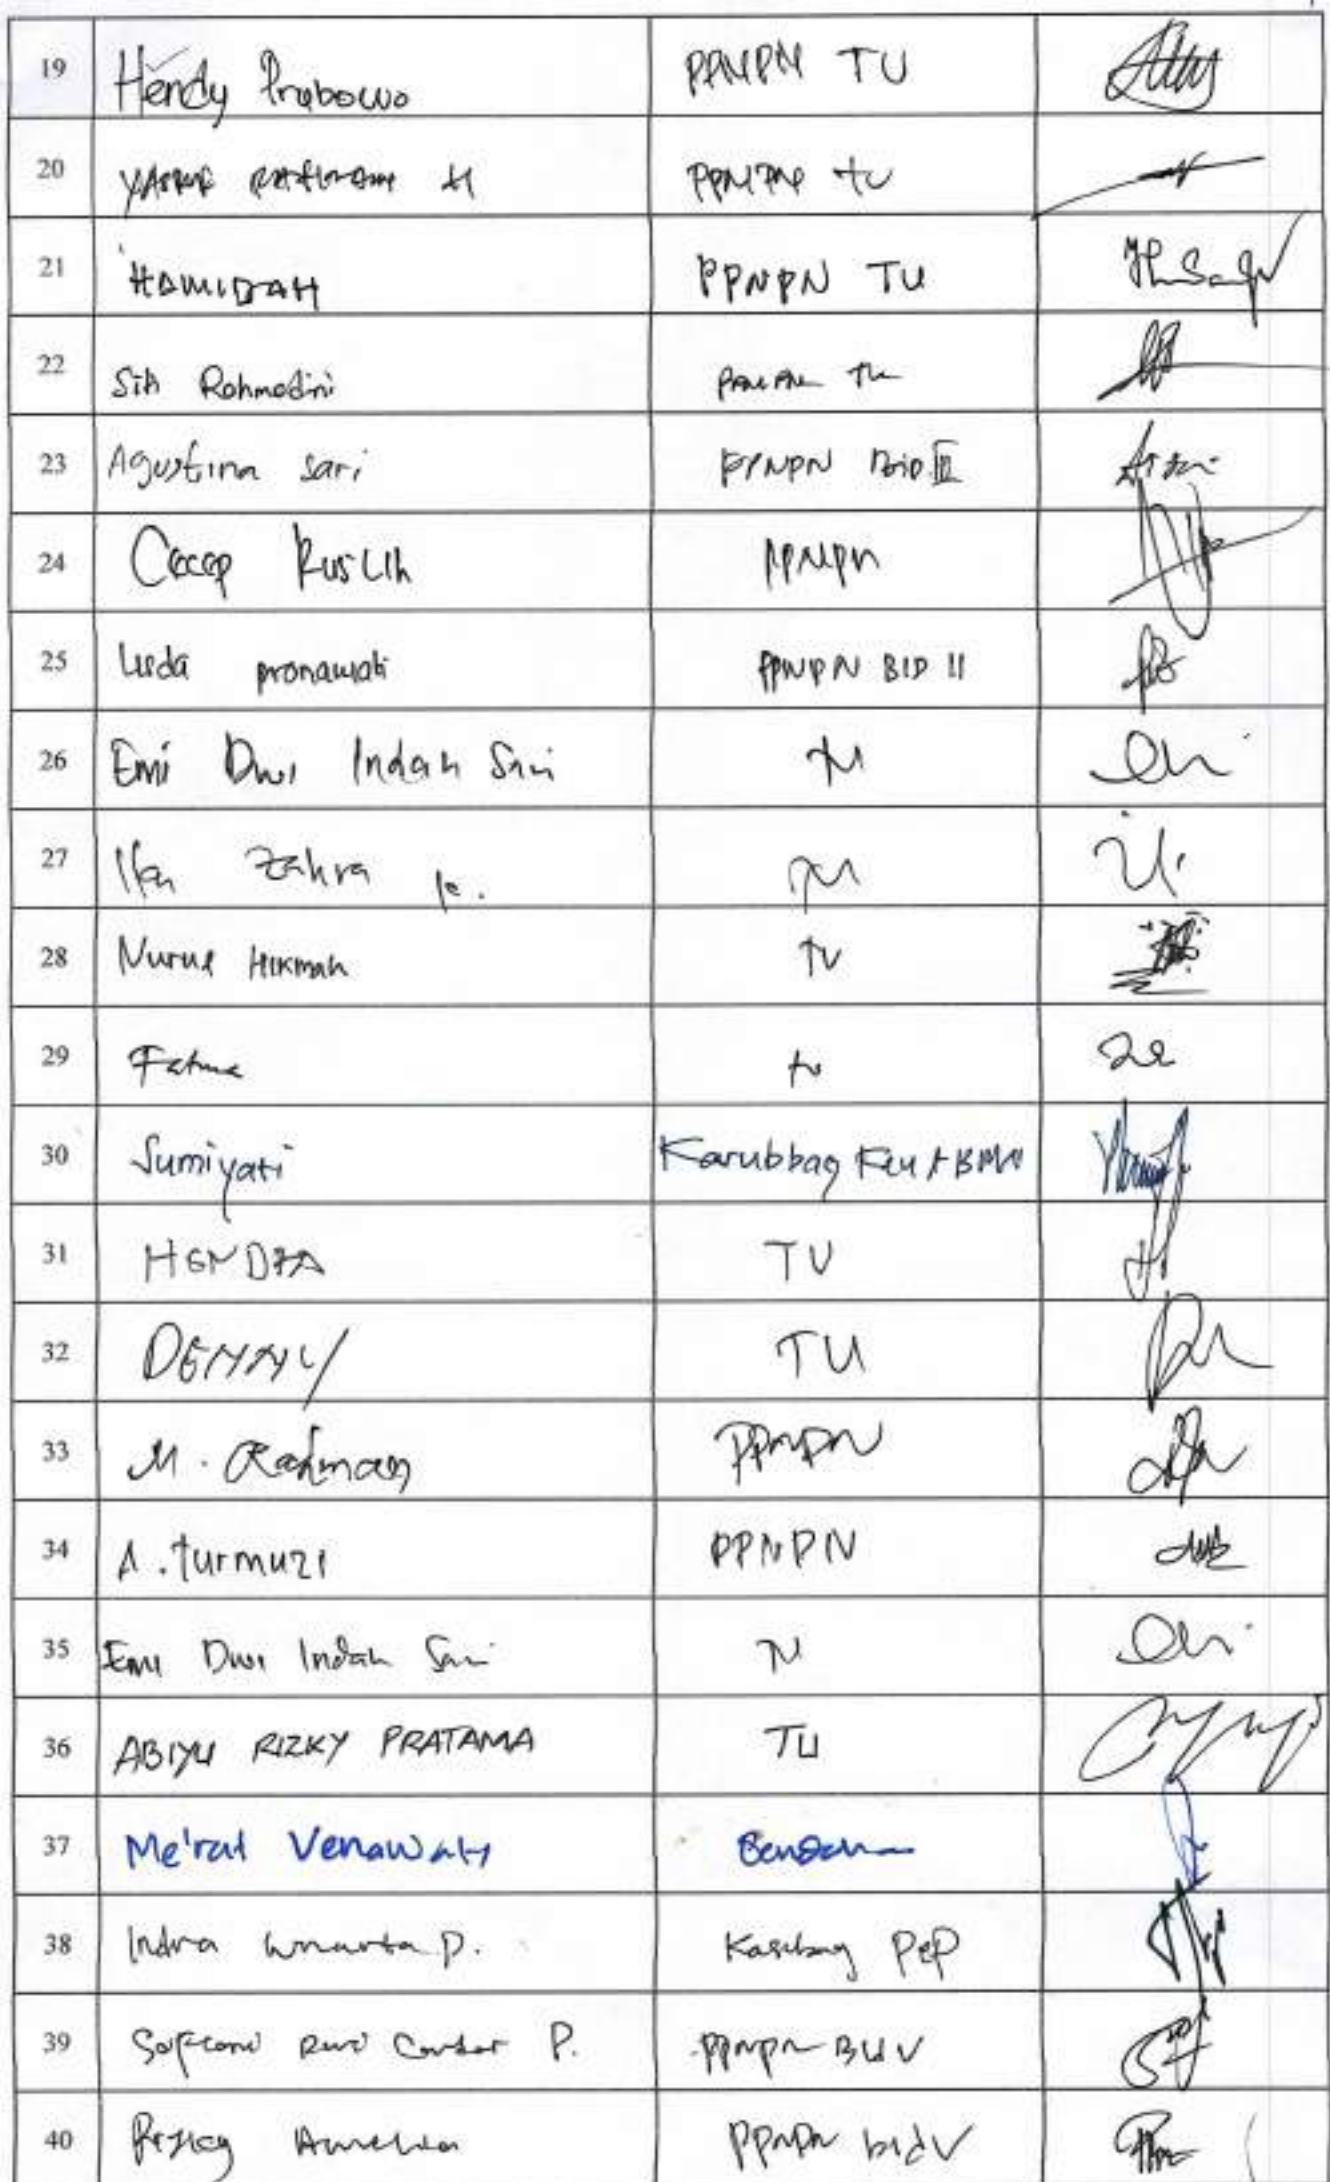 19 Hendy Prabowo PPNPN TU
20 PPNPN TU
21 HAMIDAH PPNPN TU
22 Siti Rohmadini PPNPN TU
23 Agustina Sari PPNPN BID III
24 Cecep Ruslih PPNPN
25 Lisda pronawati PPNPN BID II
26 Emi Dwi Indah Sari TU
27 Ika Zahra K. TU
28 Nurul Hikmah TU
29 Fatma tu
30 Sumiyati Kasubbag Keu & BMN
31 HENDRA TU
32 DENNY TU
33 M. Rahman PPNPN
34 A. Turmuzi PPNPN
35 Emi Dwi Indah Sari TU
36 ABIYU RIZKY PRATAMA TU
37 Me'rat Venawaty
38 Indra Winarta P. Kasubbag PEP
39 P. PPNPN BID V
40 PPNPN bid V